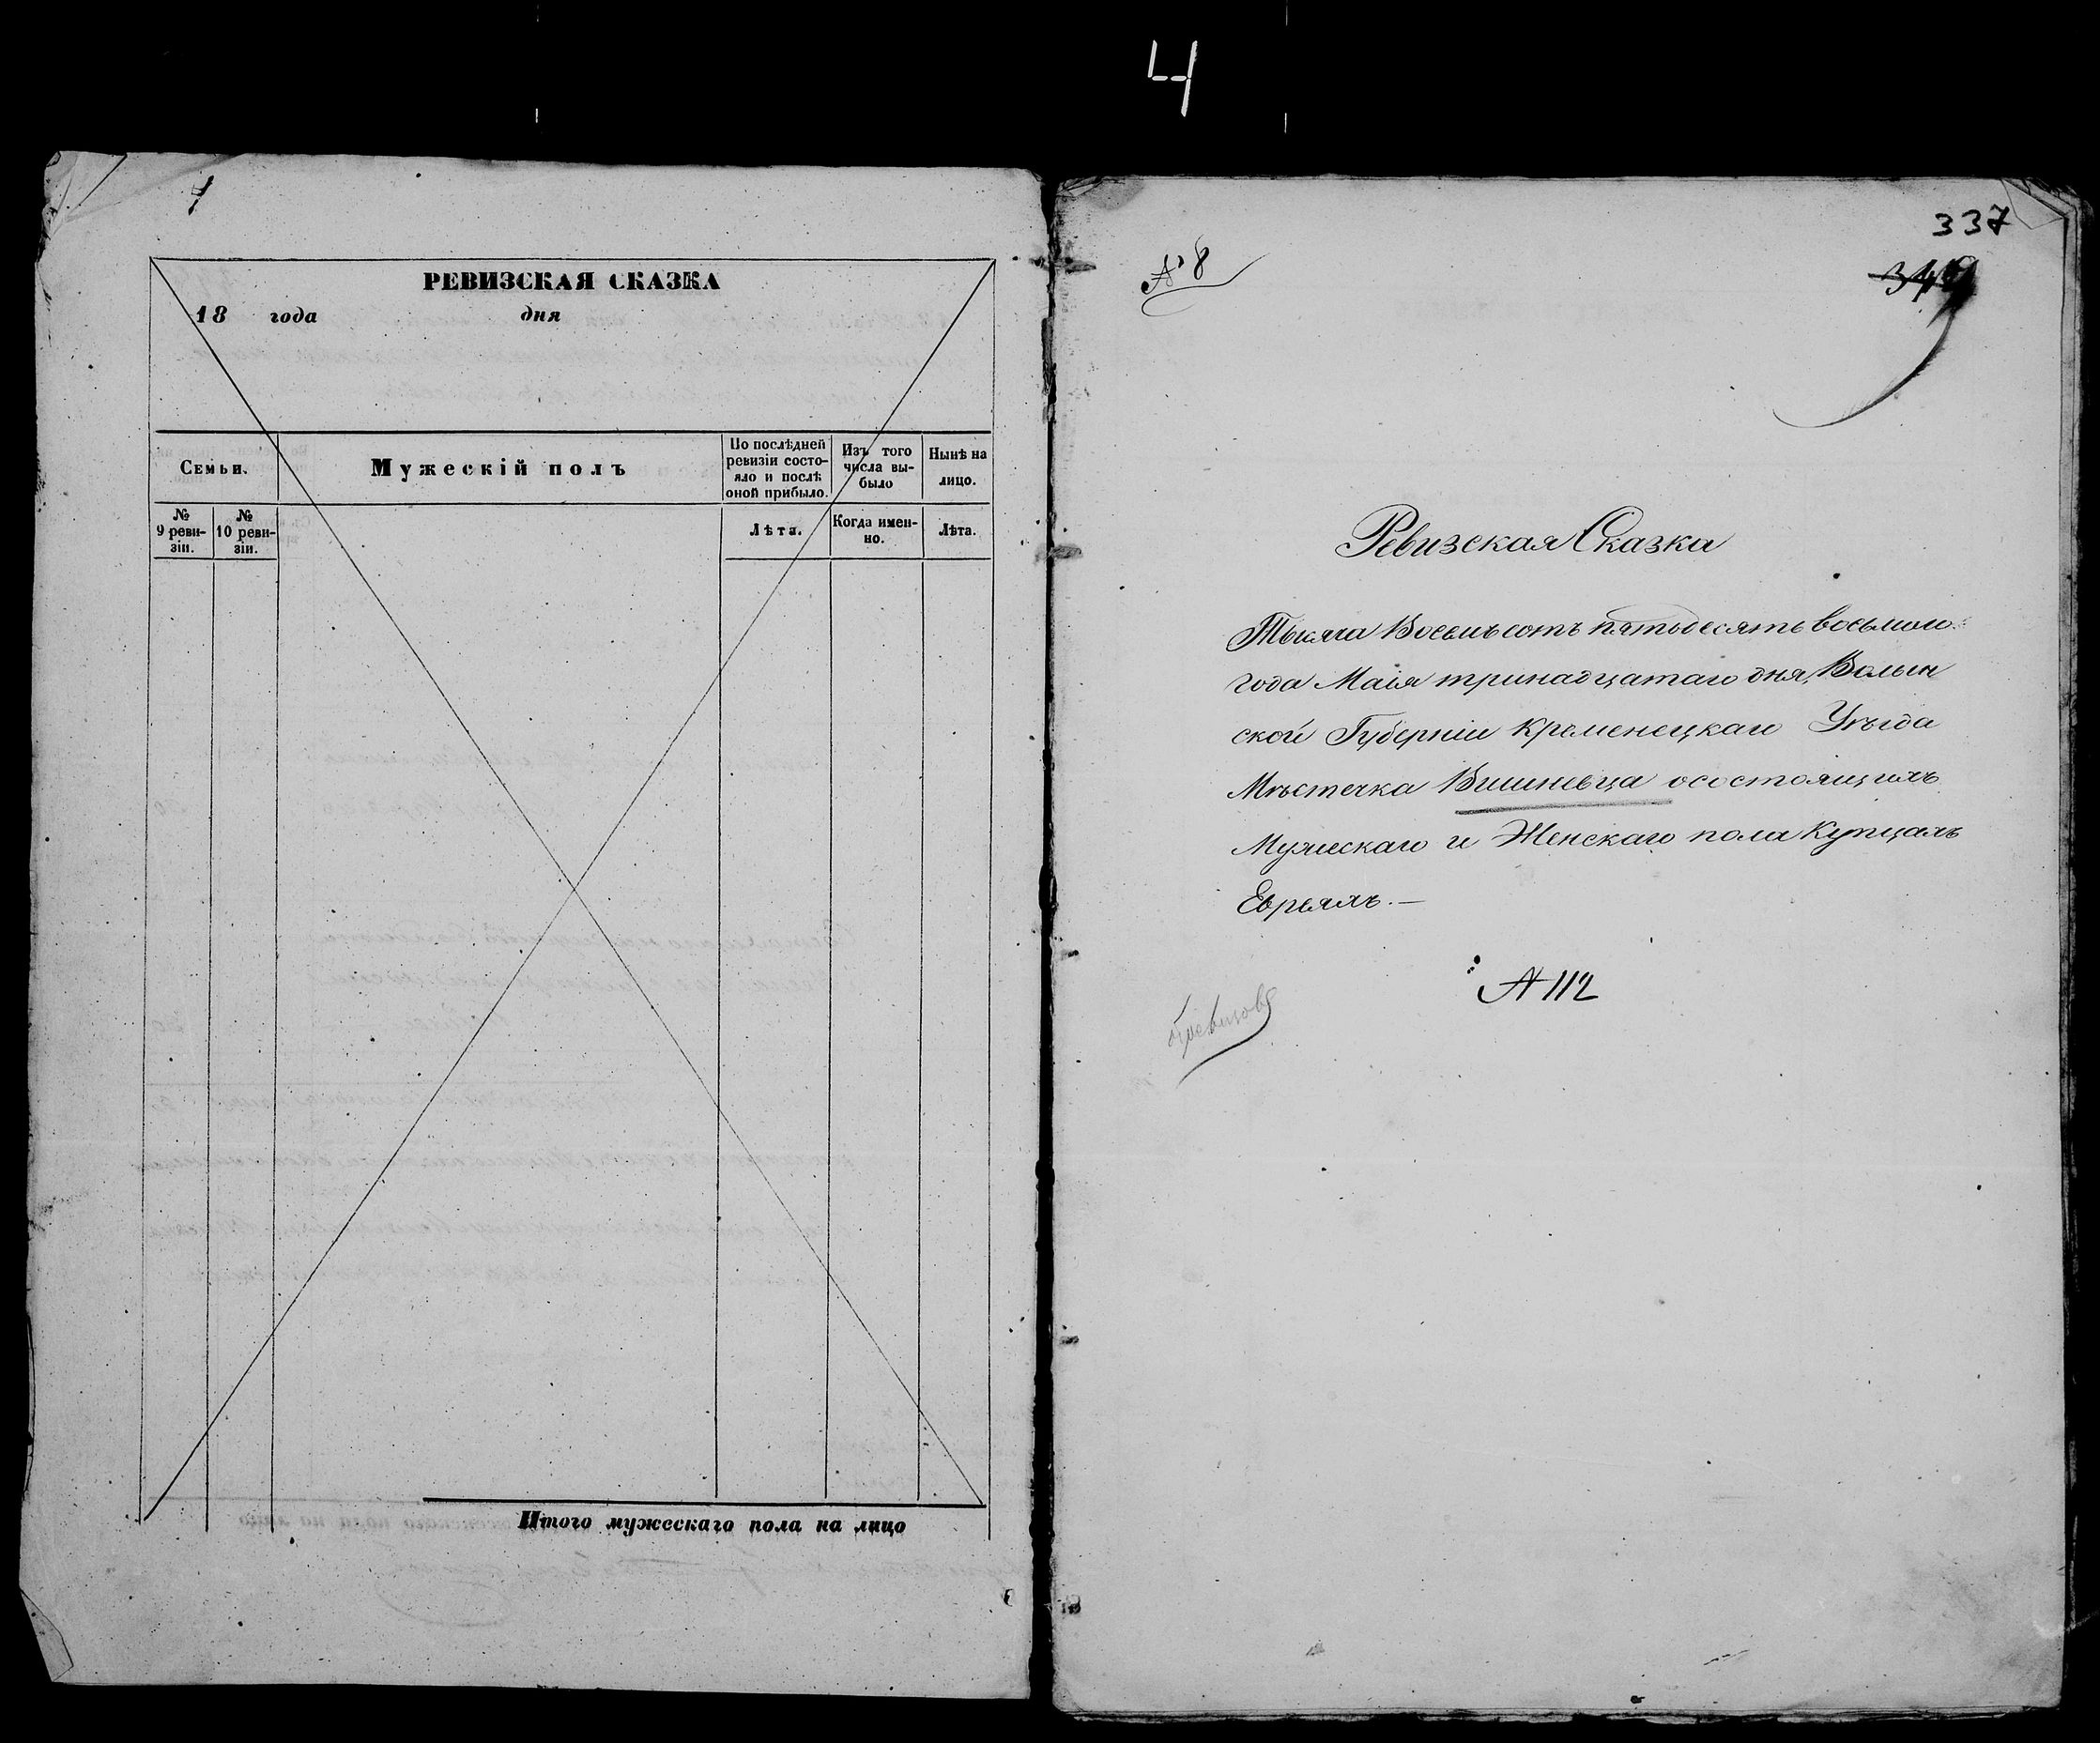 4
РЕВИЗСКАЯ СКАЗКА
18 года дня
Семьи.
Мужескій полъ
По послѣдней ревизіи состо-
яло и послѣ
оной прибыло.
Изъ того
числа вы-
было
Нынѣ на
лицо.
№
9 реви-
зіи.
№
10 реви-
зіи.
Лѣта.
Когда имен-
но.
Лѣта.
Итого мужескаго пола на лицо
337
№ 8
349
Ревизская Сказка
Тысяча Восемьсотъ пятьдесятъ восьмого
года Маія тринадцатаго дня, Волын
ской Губерніи Кременецкаго Уѣзда
Мѣстечка Вишневца осостоящихъ
Мужескаго и Женскаго пола Купцахъ
Евреяхъ. —
№ 112